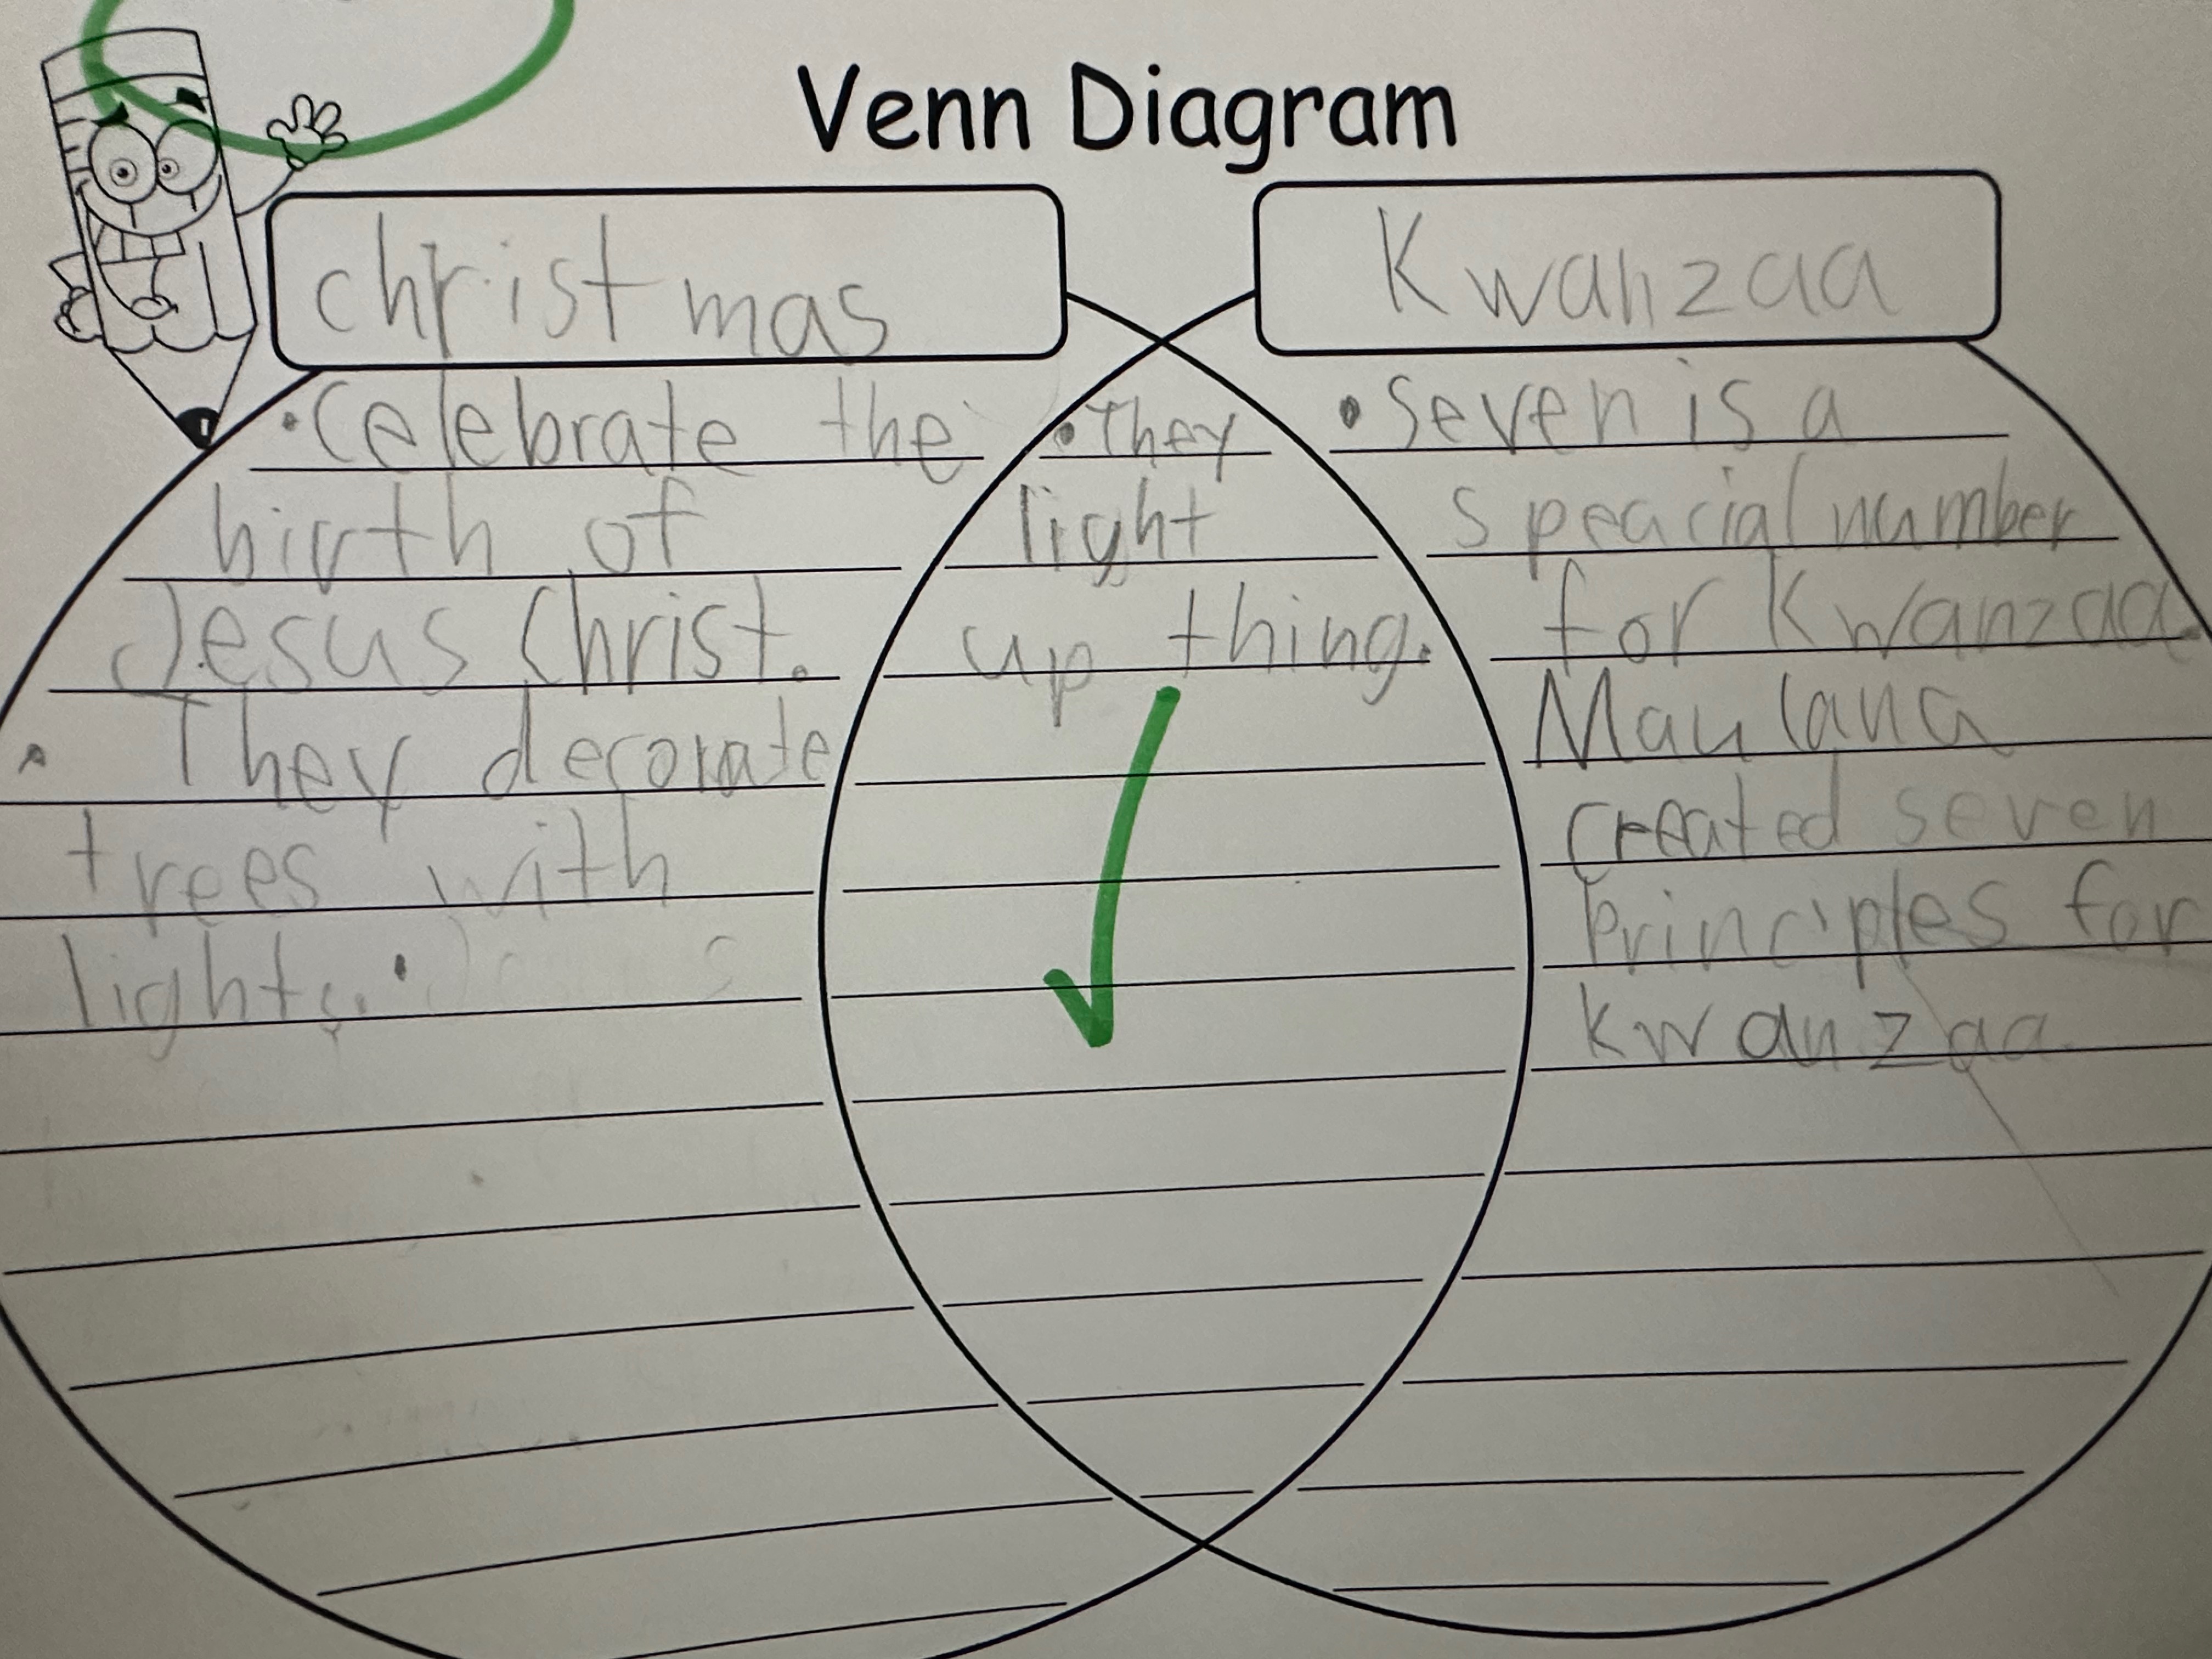 Venn Diagram
christmas
Kwanzaa
• Celebrate the
birth of
Jesus Christ.
• They decorate
trees with
lights. •
• They
light
up thing.
• Seven is a
speacial number
for Kwanzaa.
Maulana
created seven
Principles for
kwanzaa.